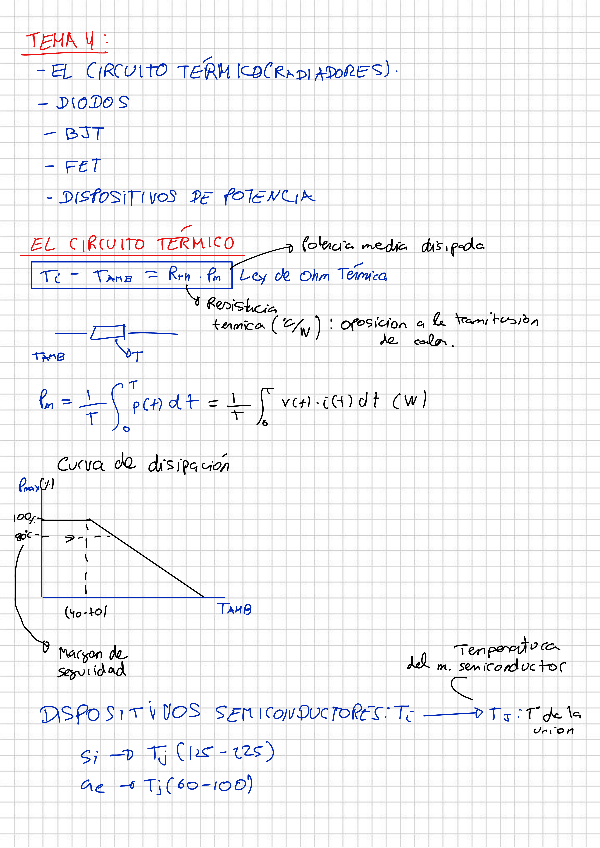 TEMA 4:
- EL CIRCUITO TÉRMICO (RADIADORES).
- DIODOS
- BJT
- FET
- DISPOSITIVOS DE POTENCIA
EL CIRCUITO TÉRMICO
Potencia media disipada
Ti - TAMB = Rth · Pm Ley de Ohm Térmica
Resistecia
termica (°C/W) : oposicion a la
de calor.
TAMB T
Pm = 1/T ∫₀ᵀ p(t) dt = 1/T ∫₀ᵀ v(t) · i(t) dt (W)
Curva de disipación
Pmax(%)
100%
80%
(40-70) TAMB
Margen de
seguridad
Temperatura
del m. semiconductor
DISPOSITIVOS SEMICONDUCTORES: Ti → TJ : Tª de la
union
Si → Tj (125-225)
Ge → Tj (60-100)